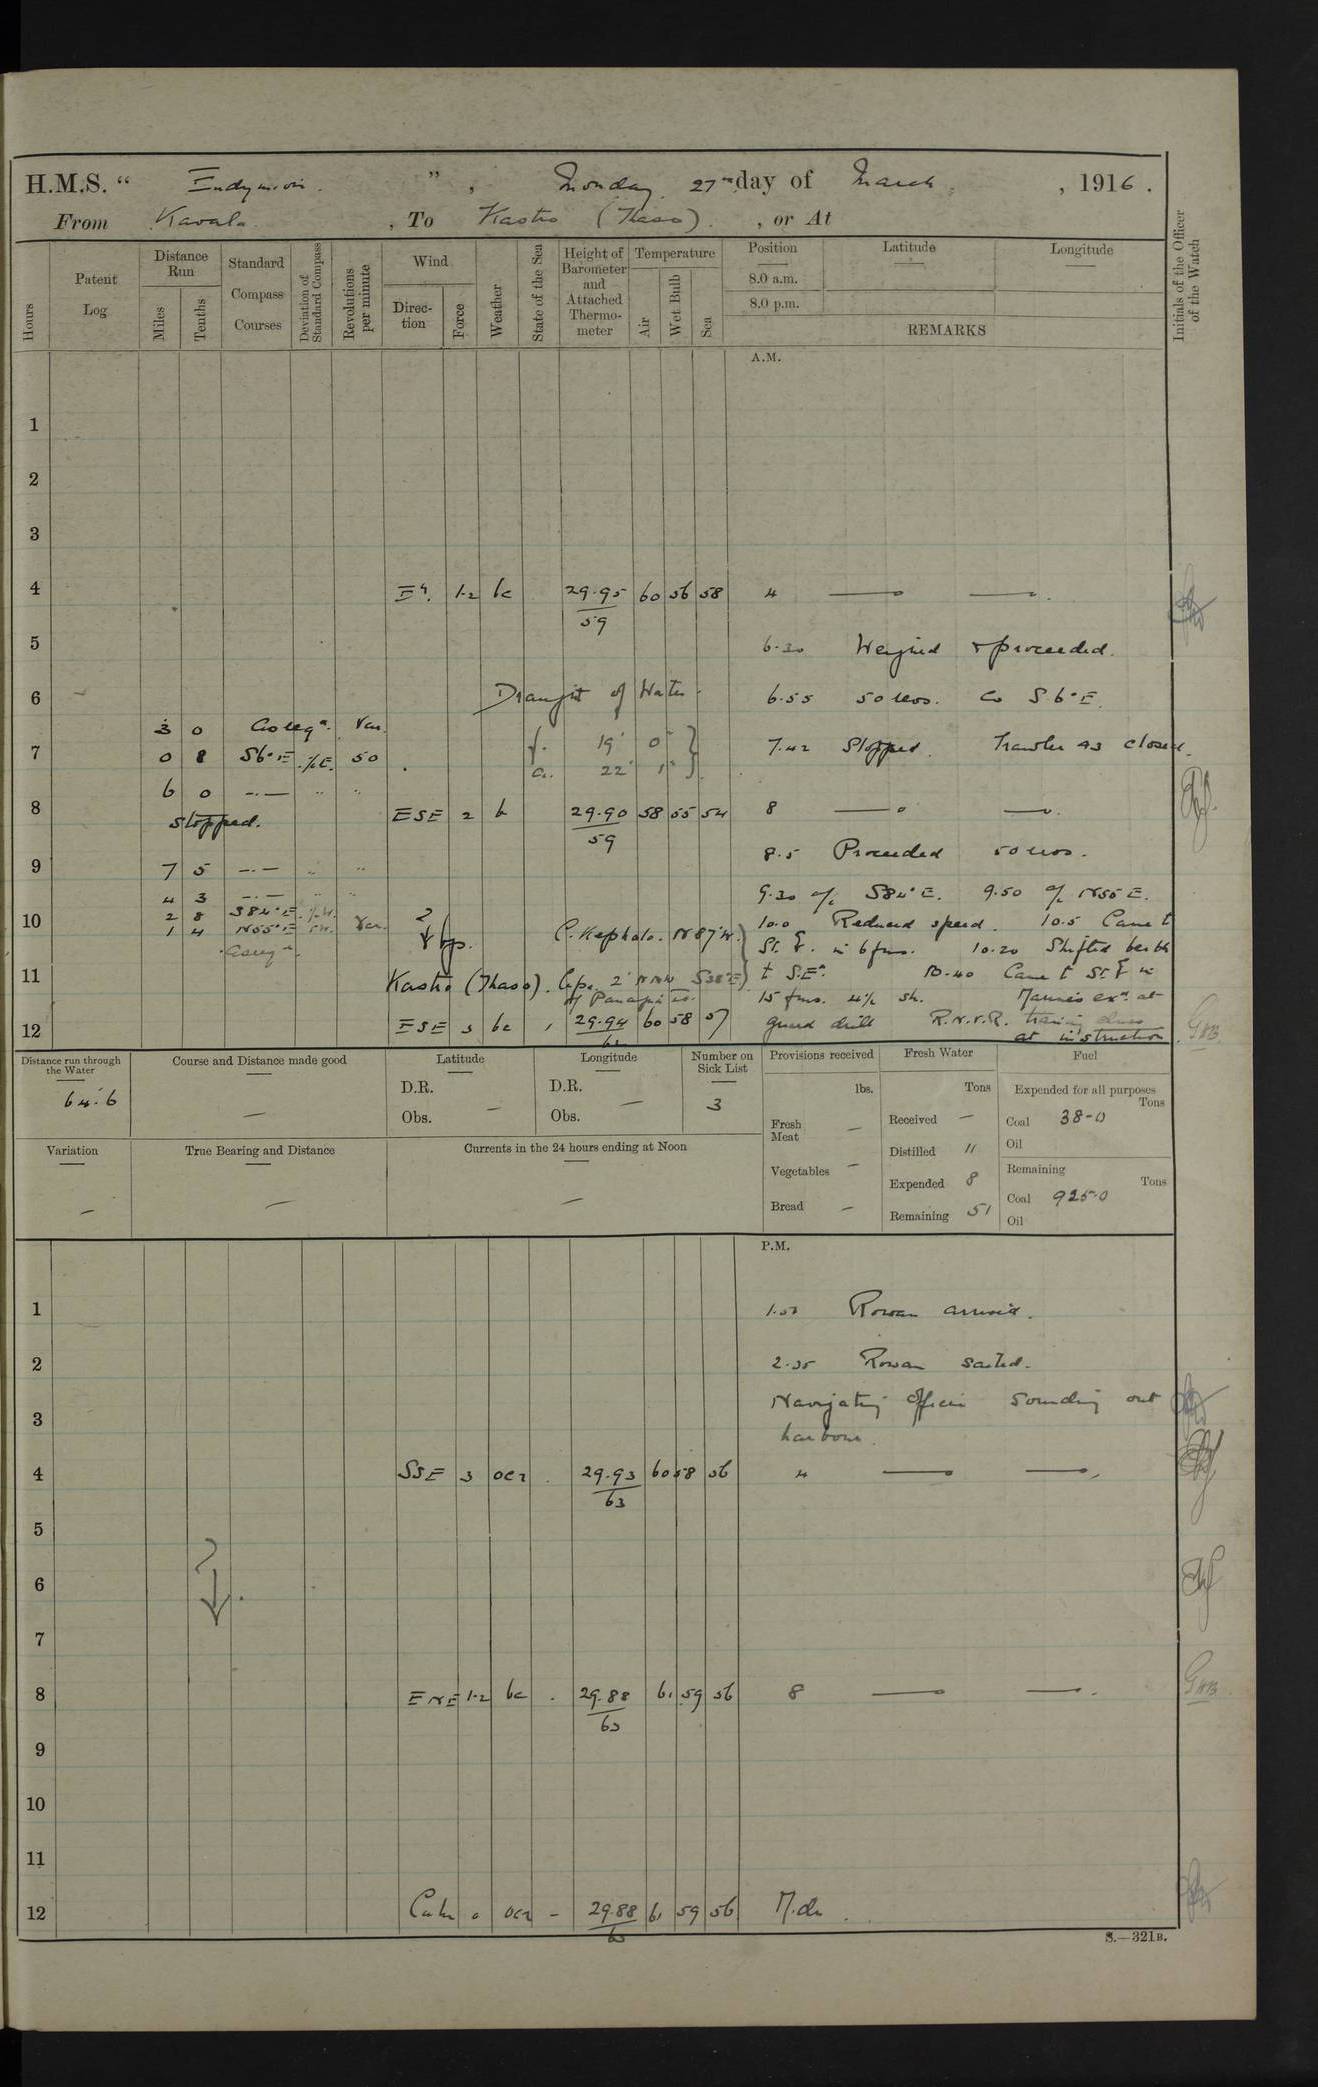 H.M.S. " Endymion " , Monday 27th day of March , 1916 .
From Kavala , To Kastro (Thaso) , or At
Hours
Patent Log
Distance Run
Miles
Tenths
Standard Compass Courses
Deviation of Standard Compass
Revolutions per minute
Wind
Direction
Force
Weather
State of the Sea
Height of Barometer and Attached Thermometer
Temperature
Air
Wet Bulb
Sea
Position
Latitude
Longitude
8.0 a.m.
8.0 p.m.
REMARKS
Initials of the Officer of the Watch
A.M.
1
2
3
4 Ely. 1-2 bc 29.95 60 56 58 4 — —
59
5 6.30 Weighed & proceeded.
6 Draught of Water 6.55 50 revs. Co S 6° E.
3 0 Co reqd. Var.
7 0 8 S6°E 50 f. 19' 0" 7.42 Stopped. Transfer 93 closed.
a. 22' 1"
6 0 — „ „
8 Stopped. ESE 2 b 29.90 58 55 54 8 — —
59
8.5 Proceeded 50 revs.
9 7 5 — „ „
4 3 — „ „ 9.30 a/c S84°E. 9.50 a/c N55°E.
10 2 8 S84°E
1 4 N55°E Var. C. Kephalo. N87°W. 10.0 Reduced speed. 10.5 Came to
As reqd. St. in 6 fms. 10.20 Shifted berth
11 Kastro (Thaso). 2' NNW S38°E to S.Ed. 10.40 Came to St. in
of Panagia Is. 15 fms. 4½ sh. Marines exd. at
12 ESE 3 bc 29.94 60 58 57 guard drill R.N.V.R. training class
at instruction
Distance run through the Water
64.6
Course and Distance made good
—
Latitude
D.R.
Obs. —
Longitude
D.R.
Obs. —
Number on Sick List
3
Provisions received
lbs.
Fresh Meat —
Vegetables —
Bread —
Fresh Water
Tons
Received —
Distilled 11
Expended 8
Remaining 51
Fuel
Expended for all purposes
Tons
Coal 38-0
Oil
Remaining
Tons
Coal 925-0
Oil
Variation
—
True Bearing and Distance
—
Currents in the 24 hours ending at Noon
—
P.M.
1 1.50 Rowan arrived.
2 2.35 Rowan sailed.
3 Navigating Officer Sounding out
harbour.
4 SSE 3 ocr 29.93 60 58 56 4 — —
63
5
6
7
8 ENE 1-2 bc 29.88 61 59 56 8 — —
63
9
10
11
12 Calm 0 ocr - 29.88 61 59 56 Mdn.
63
S.—321B.